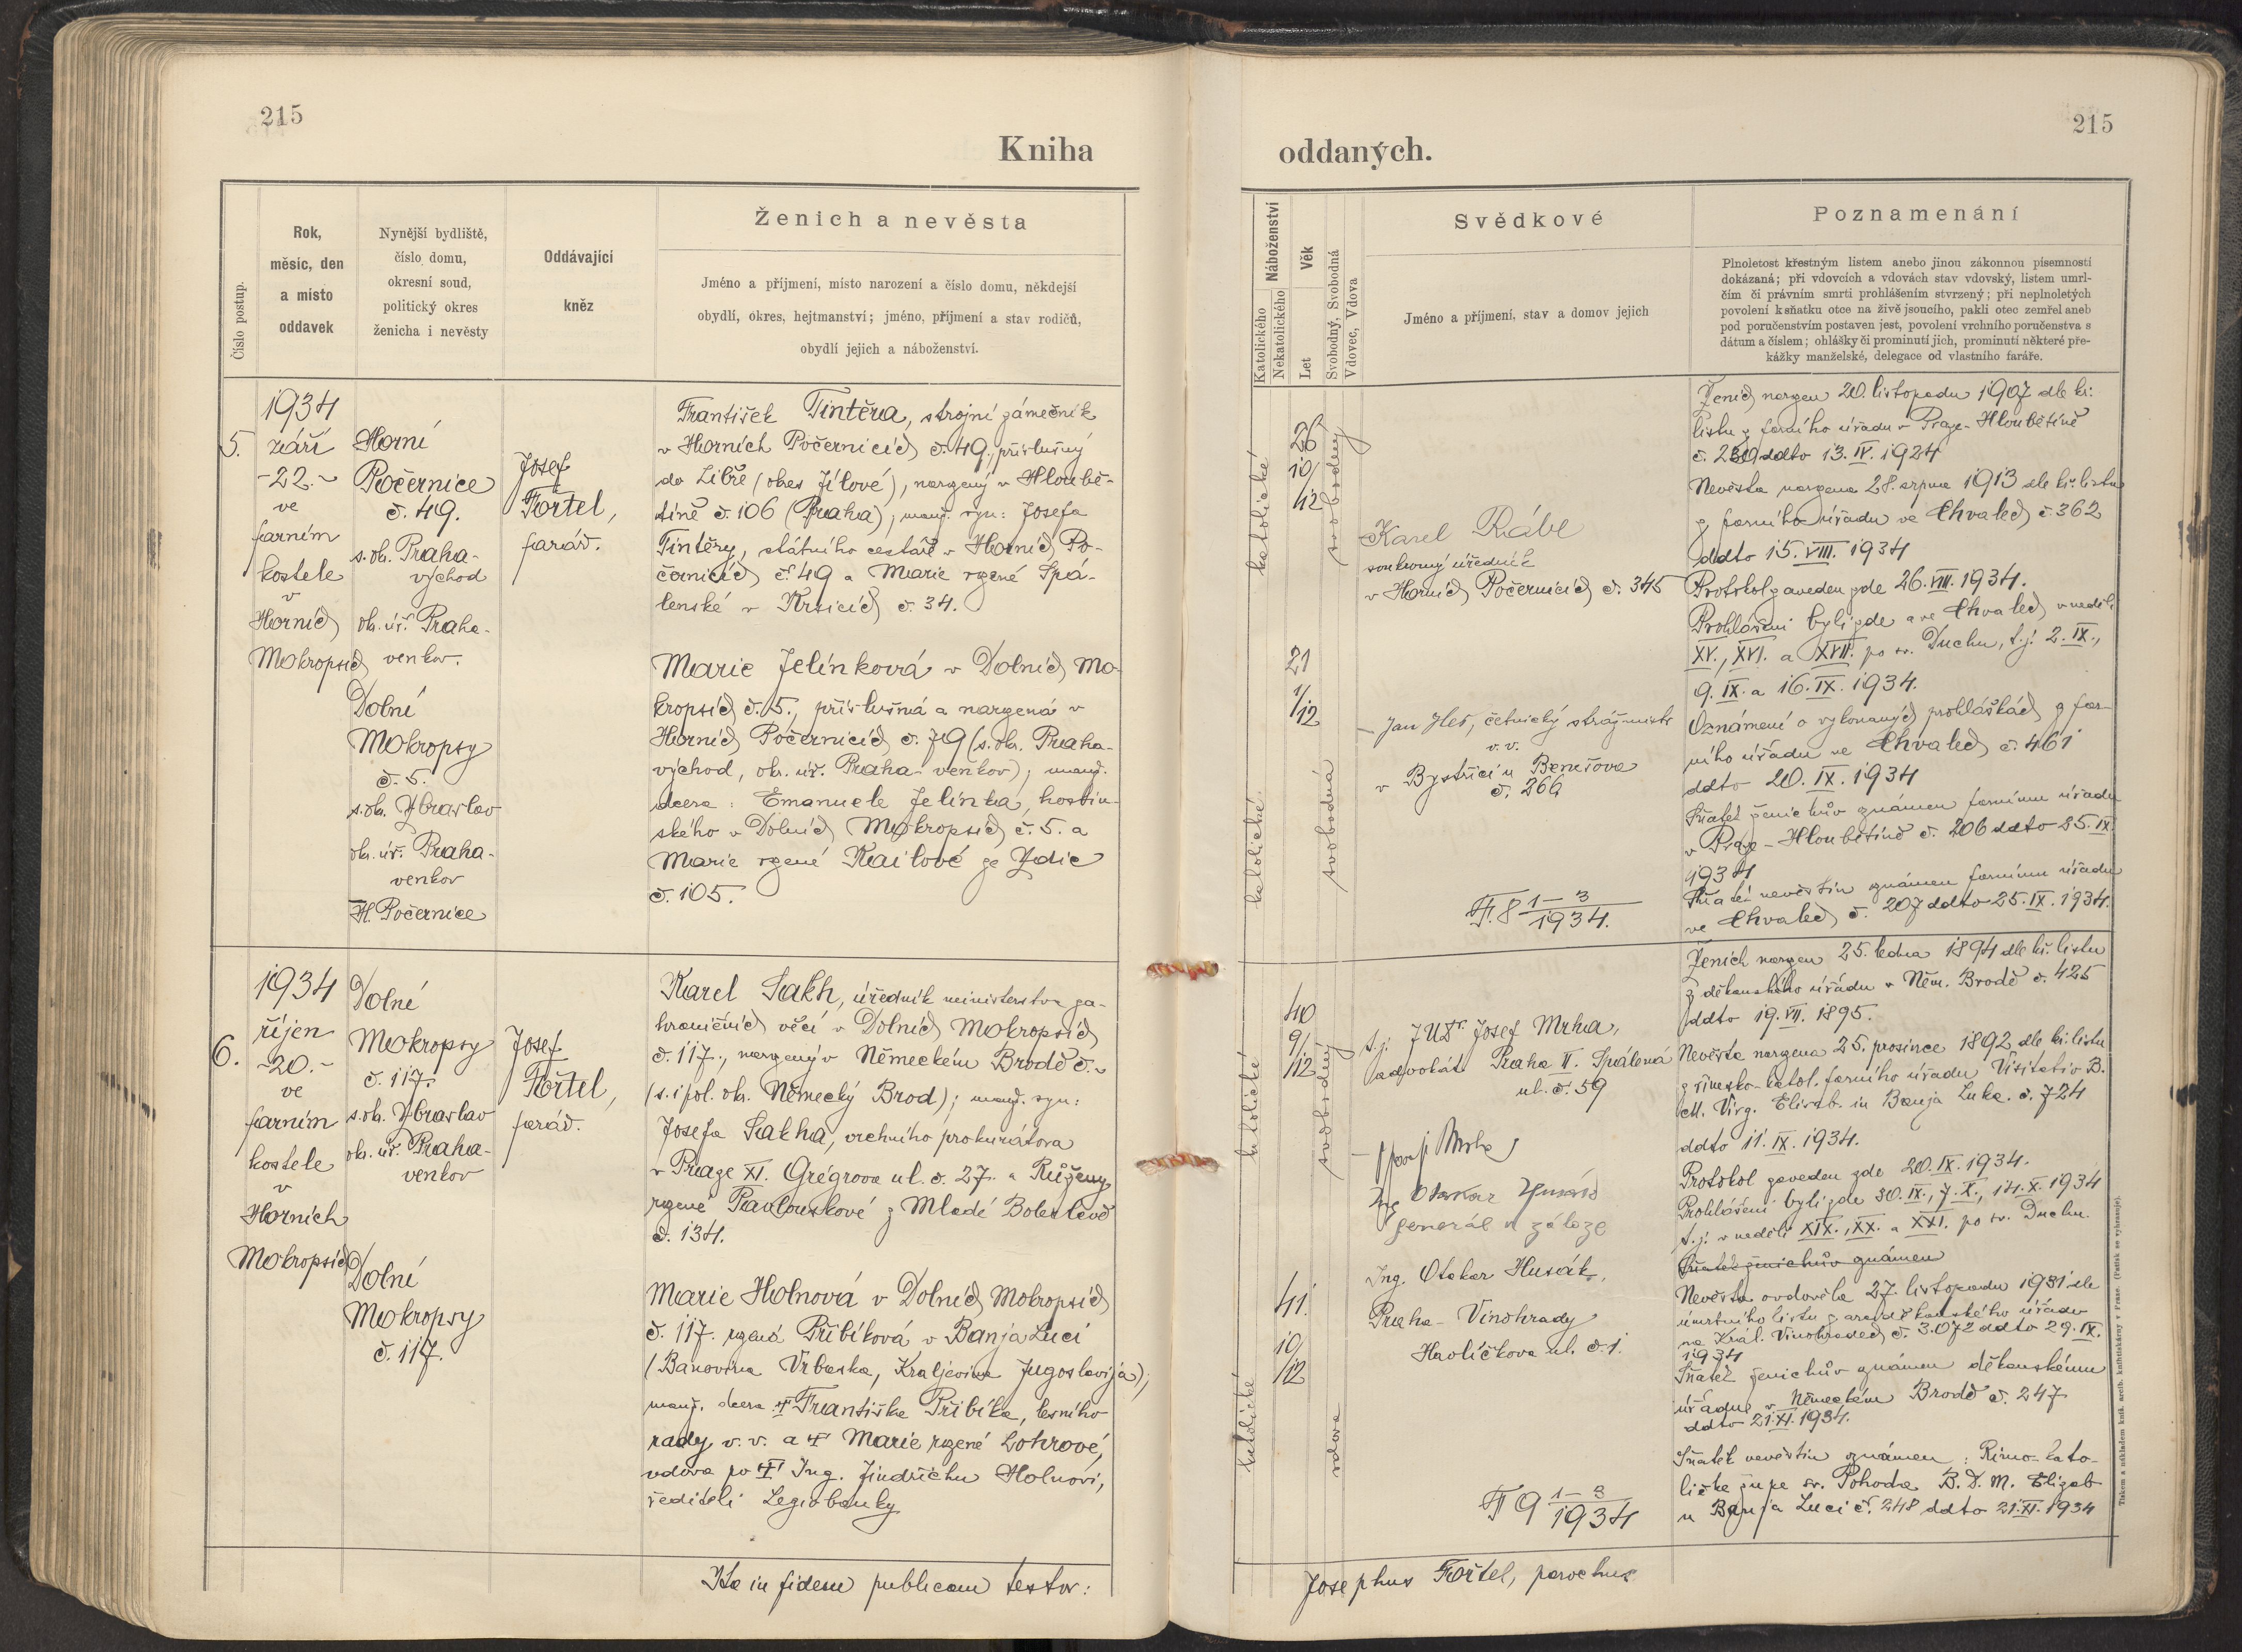 215
Kniha
Číslo postup.
Rok,
měsíc, den
a místo
oddavek
Nynější bydliště,
číslo domu,
okresní soud,
politický okres
ženicha i nevěsty
Oddávající
kněz
Ženich a nevěsta
Jméno a příjmení, místo narození a číslo domu, někdejší
obydlí, okres, hejtmanství; jméno, příjmení a stav rodičů,
obydlí jejich a náboženství.
5.
1934
září
-22.-
ve
farním
kostele
v
Horních
Mokropsích
Horní
Počernice
č. 49.
s. ok. Praha-
východ
ok. úř. Praha-
venkov.
Dolní
Mokropsy
č. 5.
s. ok. Zbraslav
ok. úř. Praha-
venkov
H. Počernice
Josef
Fořtel,
farář.
František Tintěra, strojní zámečník
v Horních Počernicích č. 49., příslušný
do Libře (okes Jílové), narzený v Hloubě-
tíně č. 106 (Praha); manž. syn: Josefa
Tintěry, státního cestáře v Horních Po-
černicích č. 49 a Marie rzené Spá-
lenské v Krsicích č. 34.
Marie Jelínková v Dolních Mo-
kropsích č. 5., příslušná a narzená v
Horních Počernicích č. 79 (s. ok. Praha-
východ, ok. úř. Praha-venkov); manž.
dcera: Emanuele Jelínka, hostin-
ského v Dolních Mokropsích č. 5. a
Marie rzené Kailové ze Zdic
č. 105.
6.
1934
říjen
-20.-
ve
farním
kostele
v
Horních
Mokropsích
Dolné
Mokropsy
č. 117.
s. ok. Zbraslav
ok. úř. Praha-
venkov
Dolní
Mokropsy
č. 117.
Josef
Fořtel,
farář.
Karel Sakh, úředník ministerstva za-
hraničních věcí v Dolních Mokropsích
č. 117., narzený v Německém Brodě č. -
(s. i pol. ok. Německý Brod); manž. syn:
Josefa Sakha, vrchního prokurátora
v Praze XI. Grégrova ul. č. 27. a Růženy
rzené Pavlouskové z Mladé Boleslavě
č. 134.
Marie Holnová v Dolních Mokropsích
č. 117. rzená Přibíková v Banja Luci
(Banovina Vrbaska, Kraljevina Jugoslavija);
manž. dcera † Františka Přibíka, lesního
rady v. v. a † Marie rzené Lohrové,
vdova po † Ing. Jindřichu Holnovi,
řediteli Legiobanky
Ita in fidem publicam testor:
215
oddaných.
Náboženství
Katolického
Nekatolického
Věk
Let
Svobodný, Svobodná
Vdovec, Vdova
Svědkové
Jméno a příjmení, stav a domov jejich
Poznamenání
Plnoletost křestným listem anebo jinou zákonnou písemností
dokázaná; při vdovcích a vdovách stav vdovský, listem umrl-
čím či právním smrti prohlášením stvrzený; při neplnoletých
povolení k sňatku otce na živě jsoucího, pakli otec zemřel aneb
pod poručenstvím postaven jest, povolení vrchního poručenstva s
dátum a číslem; ohlášky či prominutí jich, prominutí některé pře-
kážky manželské, delegace od vlastního faráře.
katolické
26
10/
12
svobodný
Karel Rábl
soukromý úředník
v Horních Počernicích č. 345
katolické
21
1/
12
svobodná
Jan Heš, četnický strážmistr
v. v.
v Bystřici u Benešova
č. 266
F. 8 1-3
1934.
Ženich narzen 20. listopadu 1907 dle kř.
listu z farního úřadu v Praze-Hloubětíně
č. 230 ddto 13. IV. 1924
Nevěsta narzena 28. srpna 1913 dle kř. listu
z farního úřadu ve Chvalech č. 362
ddto 15. VIII. 1934
Protokol zaveden zde 26. VIII. 1934.
Prohlášeni byli zde a ve Chvalech v neděli
XV., XVI. a XVII. po sv. Duchu, t. j. 2. IX.,
9. IX. a 16. IX. 1934.
Oznámení o vykonaných prohláškách z far-
ního úřadu ve Chvalech č. 461
ddto 20. IX. 1934
Sňatek ženichův oznámen farnímu úřadu
v Praze-Hloubětíně č. 206 ddto 25. IX.
1934
Sňatek nevěstin oznámen farnímu úřadu
ve Chvalech č. 207 ddto 25. IX. 1934.
katolické
40
9/
12
svobodný
t. j. JUDr. Josef Mrha,
advokát Praha II. Spálená
ul. č. 59
Ing Otakar Husák
generál v záloze
Ing. Otakar Husák,
Praha-Vinohrady
Havlíčkova ul. č. 1.
katolické
41.
10/
12
vdova
F 9 1-3
1934
Ženich narzen 25. ledna 1894 dle kř. listu
z děkanského úřadu v Něm. Brodě č. 425
ddto 19. VII. 1895.
Nevěsta narzena 25. prosince 1892 dle kř. listu
z římsko-katol. farního úřadu Visitatio B.
M. Virg. Elisab. in Banja Luka. č. 724
ddto 11. IX. 1934.
Protokol zaveden zde 20. IX. 1934.
Prohlášeni byli zde 30. IX., 7. X., 14. X. 1934
t. j. v neděli XIX., XX. a XXI. po sv. Duchu.
Sňatek ženichův oznámen
Nevěsta ovdověla 27. listopadu 1931 dle
úmrtního listu z arciděkanského úřadu
na Král. Vinohradech č. 3.072 ddto 29. IX.
1934
Sňatek ženichův oznámen děkanskému
úřadu v Německém Brodě č. 247
ddto 21. XI. 1934.
Sňatek nevěstin oznámen: Rimo-kato-
ličke župe sv. Pohoda B. D. M. Elizab
u Banja Luci č. 248 ddto 21. XI. 1934
Josephus Fořtel, parochus